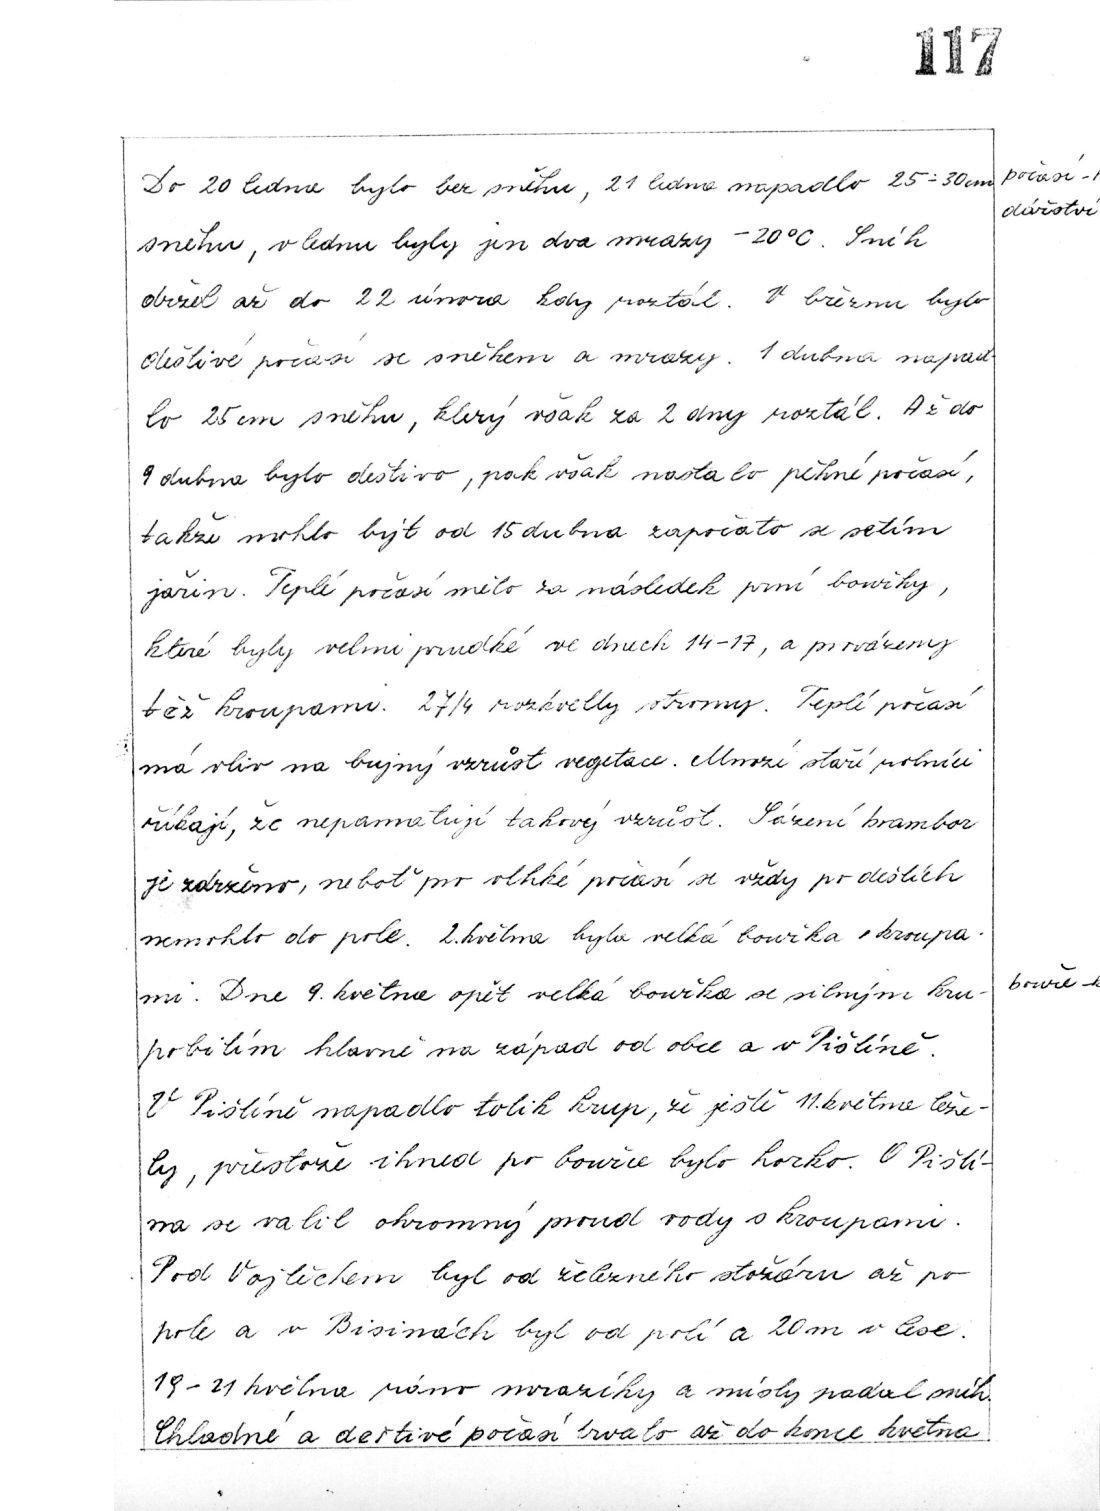 117
Do 20 ledna bylo bez sněhu, 21 ledna napadlo 25-30cm
počasí -
dářství
sněhu, v lednu byly jen dva mrazy -20°C. Sníh
držel až do 22 února kdy roztál. V březnu bylo
deštivé počasí se sněhem a mrazy. 1 dubna napad-
lo 25cm sněhu, který však za 2 dny roztál. Až do
9 dubna bylo deštivo, pak však nastalo pěkné počasí,
takže mohlo být od 15 dubna započato se setím
jařin. Teplé počasí mělo za následek první bouřky,
které byly velmi prudké ve dnech 14-17, a provázeny
též kroupami. 27/4 rozkvetly stromy. Teplé počasí
má vliv na bujný vzrůst vegetace. Mnozí staří rolníci
říkají, že nepamatují takový vzrůst. Sázení brambor
je zdrženo, neboť pro vlhké počasí se vždy po deštích
nemohlo do pole. 2. května byla velká bouřka s kroupa-
mi. Dne 9. května opět velká bouřka se silným kru-
bouře -
pobitím hlavně na západ od obce a v Pištíně.
V Pištíně napadlo tolik krup, že ještě 11. května leže-
ly, přestože ihned po bouřce bylo horko. O Piští-
na se valil ohromný proud vody s kroupami.
Pod Vojtěchem byl od železného stožáru až po
pole a v Bisinách byl od polí a 20m v lese.
19-21 května ráno mrazíky a místy padal sníh.
Chladné a deštivé počasí trvalo až do konce května